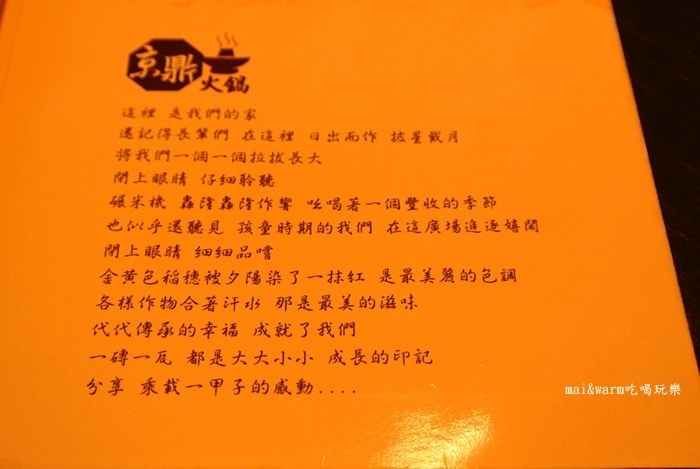 京鼎
火鍋
這裡 是我們的家
還記得長輩們 在這裡 日出而作 披星戴月
將我們一個一個拉拔長大
閉上眼睛 仔細聆聽
碾米機 轟隆轟隆作響 吆喝著一個豐收的季節
也似乎還聽見 孩童時期的我們 在這廣場追逐嬉鬧
閉上眼睛 細細品嚐
金黃色稻穗被夕陽染了一抹紅 是最美麗的色調
各樣作物合著汗水 那是最美的滋味
代代傳承的幸福 成就了我們
一磚一瓦 都是大大小小 成長的印記
分享 乘載一甲子的感動....
mai&warm吃喝玩樂